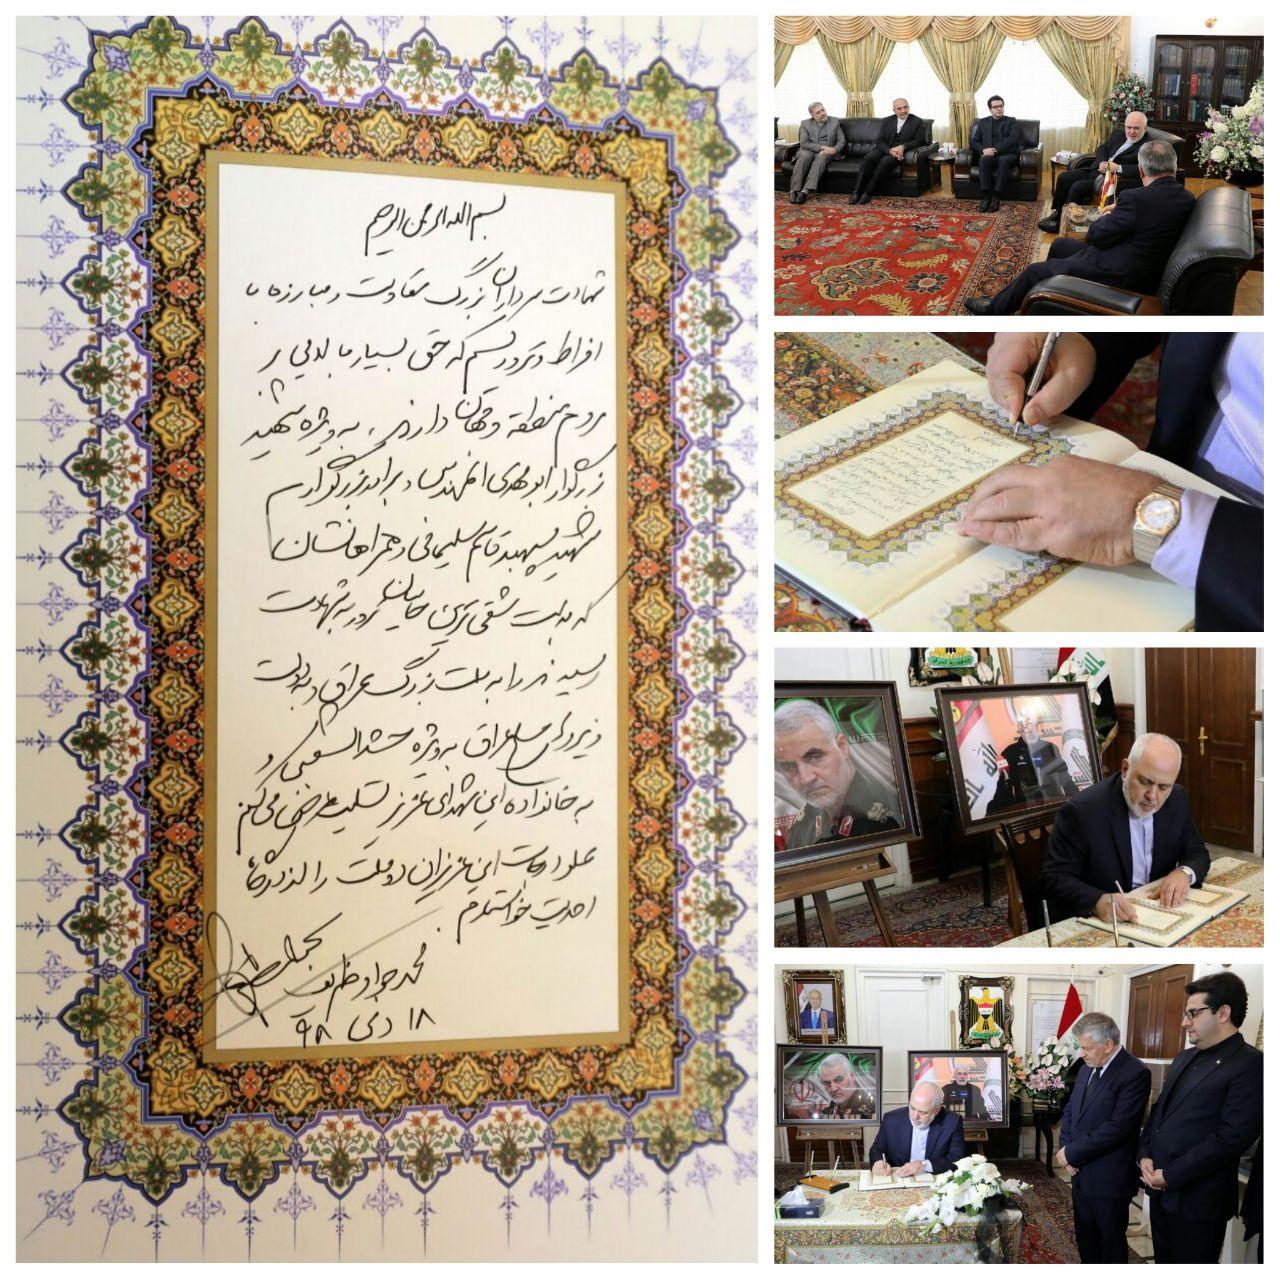 بسم الله الرحمن الرحیم
شهادت سرداران بزرگ مقاومت و مبارزه با
افراط و تروریسم که حق بسیار بالایی بر
مردم منطقه و جهان دارند، به ویژه شهید
بزرگوار ابو مهدی المهندس و برادر بزرگوارم
شهید سپهبد قاسم سلیمانی و همراهانشان
که به دست شقی ترین جانیان کرور به شهادت
رسیدند را به ملت بزرگ عراق و به دولت
و نیروهای مسلح عراق به ویژه حشد الشعبی و
به خانواده این شهدای عزیز تسلیت عرض می کنم
علو درجات این عزیزان دو ملت را از درگاه
احدیت خواستارم.
محمد جواد ظریف
۱۸ دی ۹۸